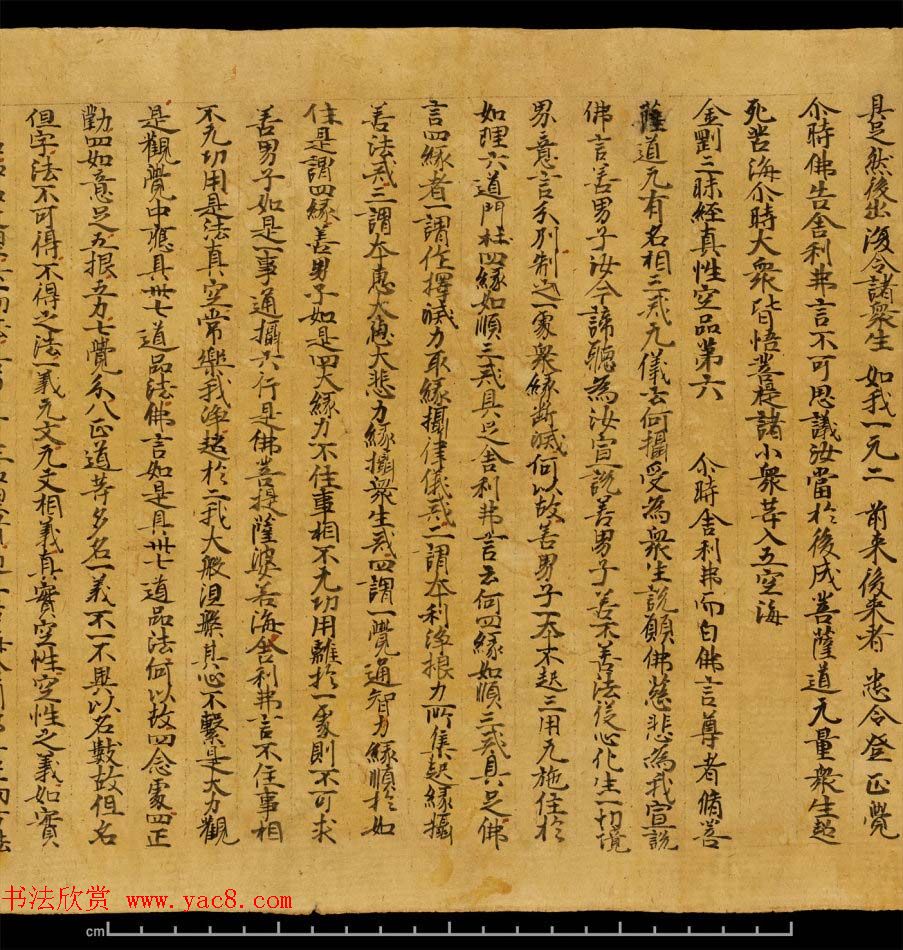 具足然後出復令諸衆生 如我一无二 前来後来者 悉令登正覺
尒時佛告舍利弗言不可思議汝當於後成菩薩道无量衆生超
死苦海尒時大衆皆悟菩提諸小衆等入五空海
金剛三昧経真性空品第六 尒時舍利弗而白佛言尊者脩菩
薩道无有名相三戒无儀云何攝受為衆生説願佛慈悲為我宣説
佛言善男子汝今諦聽為汝宣説善男子善不善法従心化生一切境
界意言分別制之一處衆縁断滅何以故善男子一本不起三用无施住於
如理六道門杜四縁如順三戒具足舍利弗言云何四縁如順三戒具足佛
言四縁者一謂作擇滅力取縁攝律儀戒二謂本利浄根力所集起縁攝
善法戒三謂本恵大悲力縁攝衆生戒四謂一覺通智力縁順於如
住是謂四縁善男子如是四大縁力不住事相不无功用離於一處則不可求
善男子如是一事通攝六行是佛菩提薩婆若海舍利弗言不住事相
不无功用是法真空常樂我浄超於二我大般涅槃其心不繫是大力觀
是觀覺中應具卅七道品法佛言如是具卅七道品法何以故四念處四正
勤四如意足五根五力七覺分八正道等多名一義不一不異以名數故但名
但字法不可得不得之法一義无文无文相義真實空性空性之義如實
cm
书法欣赏 www.yac8.com